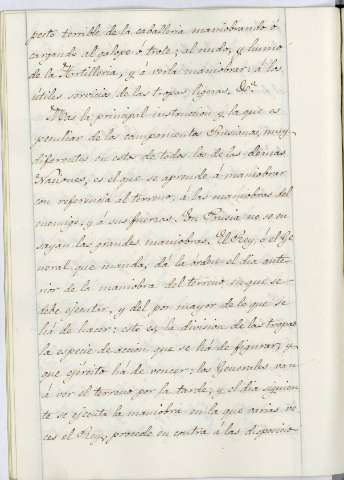 pecto terrible de la caballeria maniobrando ó
cargando al galope ó trote; al ruido, y humo
de la Artilleria, y á verla maniobrar: á los
útiles servicios de las tropas ligeras, &c.ª
Mas la principal instruccion y la que es
peculiar de los campamentos Prusianos, muy
diferentes en esto de todos los de las demas
Naciones, es el que se aprende á maniobrar
con referencia al terreno, á las maniobras del
enemigo, y á sus fuerzas. En Prusia no se en
sayan las grandes maniobras. El Rey, ó el Ge
neral que manda, dá la orden el dia ante
rior de la maniobra del terreno en que se
debe ejecutar, y del por mayor de lo que se
há de hacer: esto es, la division de las tropas
la especie de accion que se há de figurar, y
que ejército há de vencer: los Generales van
á ver el terreno por la tarde, y el dia siguien
te se ejecuta la maniobra en la que varias ve
ces el Rey, procede en contra á las disposicio